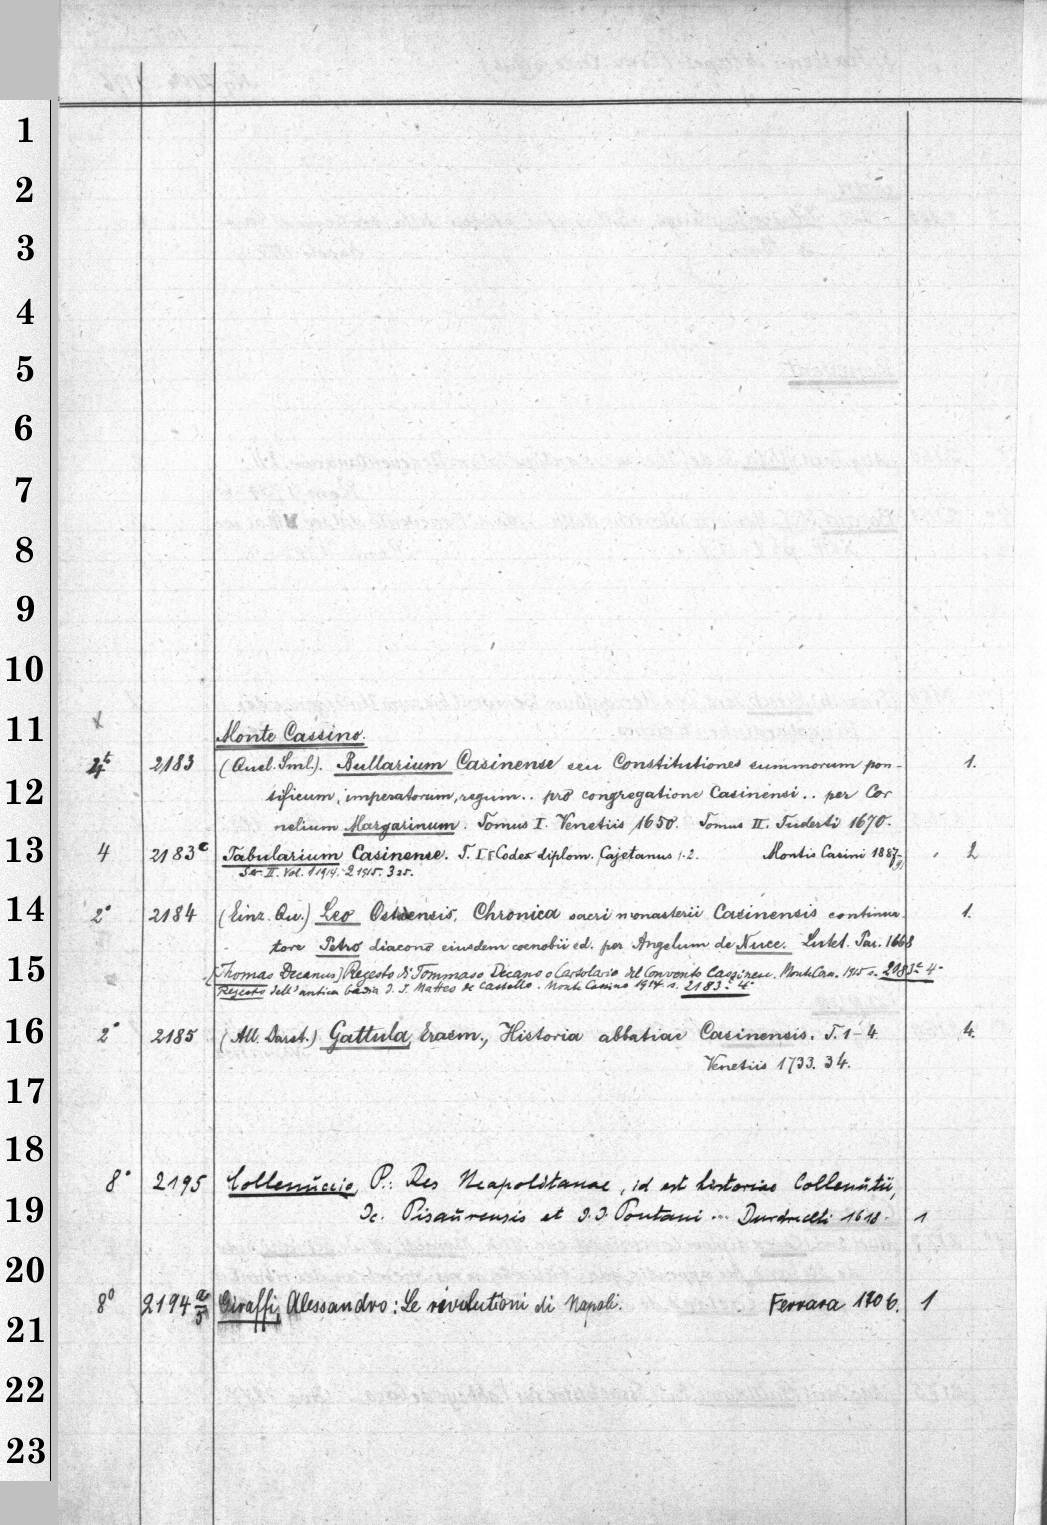 1
2
3
4
5
6
7
8
9
10
11 Monte Cassino.
4t 2183 (Quel. Sml.). Bullarium Casinense seu Constitutiones summorum pon- 1.
12 tificum, imperatorum, regum.. pro congregatione Casinensi.. per Cor
nelium Margarinum. Tomus I. Venetiis 1650. Tomus II. Tuderti 1670.
13 4 2183c Tabularium Casinense. T. I Codex diplom. Cajetanus 1.2. Montis Casini 1887- 2
Ser. II. Vol. 1 1914. 2 1915. 3 25.
14 2° 2184 (Einz. Qu.) Leo Ostiensis, Chronica sacri monasterii Casinensis continua- 1.
tore Petro diacono eiusdem coenobii ed. per Angelum de Nuce. Lutet. Par. 1668
15 (Thomas Decanus) Regesto di Tommaso Decano o Cartolario del Convento Cassinese. Monte Cass. 1915 s. 2183c 4°
Regesto dell'antica badia di S. Matteo de Castello. Monte Cassino 1914 s. 2183c 4°
16 2° 2185 (All. Darst.) Gattula, Erasm., Historia abbatiae Casinensis. T. 1-4 4.
Venetiis 1733. 34.
17
18
8° 2195 Collenuccio, P.: Res Neapolitanae, id est historiae Collenutii,
19 Jc. Pisaurensis et J. J. Pontani ... Dordrechti 1618. 1
20
8° 2194 a/5 Giraffi, Alessandro: Le revolutioni di Napoli. Ferrara 1706. 1
21
22
23